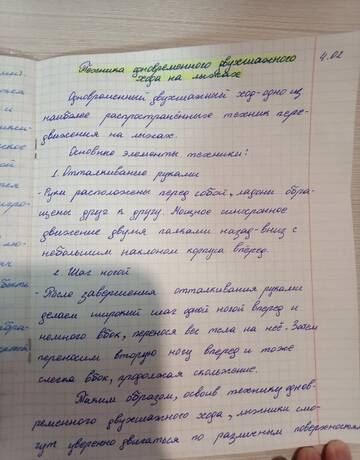 4.02
Техника одновременного двухшажного
хода на лыжах
Одновременный двухшажный ход - одно из
наиболее распространённых техник пере-
движения на лыжах.
Основные элементы техники:
1. Отталкивание руками
- Руки расположены перед собой, ладони обра-
щены друг к другу. Мощное синхронное
движение двумя палками назад-вниз с
небольшим наклоном корпуса вперед.
2. Шаг ногой
- После завершения отталкивания руками
делаем широкий шаг одной ногой вперед и
немного вбок, перенося вес тела на неё. Затем
переносим вторую ногу вперед и тоже
слегка вбок, продолжая скольжение.
Таким образом, освоив технику однов-
ременного двухшажного хода, лыжники смо-
гут уверенно двигаться по различным поверхностям